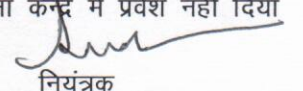 केन्द्र में प्रवेश नहीं दिया
नियंत्रक